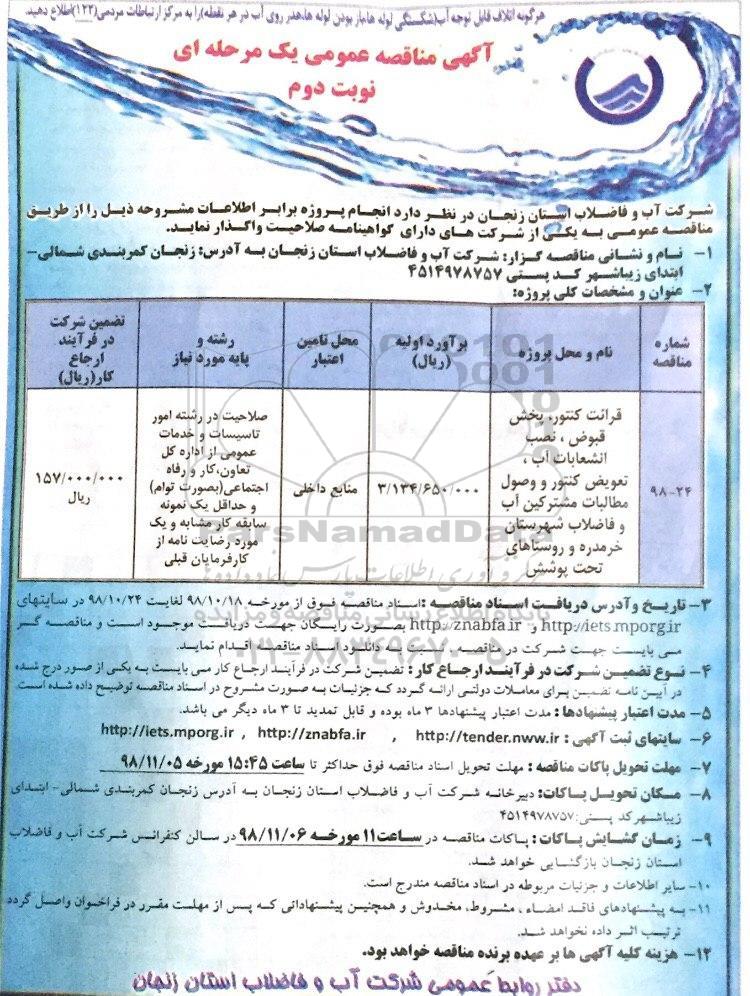 هرگونه اتلاف قابل توجه آب(شکستگی لوله ها،باز بودن لوله ها،هدر روی آب در هر نقطه)را به مرکز ارتباطات مردمی(۱۲۲)اطلاع دهید.
آگهی مناقصه عمومی یک مرحله ای
نوبت دوم
شرکت آب و فاضلاب استان زنجان در نظر دارد انجام پروژه برابر اطلاعات مشروحه ذیل را از طریق
مناقصه عمومی به یکی از شرکت های دارای گواهینامه صلاحیت واگذار نماید.
۱- نام و نشانی مناقصه گزار: شرکت آب و فاضلاب استان زنجان به آدرس: زنجان کمربندی شمالی-
ابتدای زیباشهر کد پستی ۴۵۱۴۹۷۸۷۵۷
۲- عنوان و مشخصات کلی پروژه:
شماره مناقصه
نام و محل پروژه
برآورد اولیه (ریال)
محل تامین اعتبار
رشته و پایه مورد نیاز
تضمین شرکت در فرآیند ارجاع کار(ریال)
۹۸-۲۴
قرائت کنتور، پخش
قبوض ، نصب
انشعابات آب ،
تعویض کنتور و وصول
مطالبات مشترکین آب
و فاضلاب شهرستان
خرمدره و روستاهای
تحت پوشش
۳/۱۳۴/۶۵۰/۰۰۰
منابع داخلی
صلاحیت در رشته امور
تاسیسات و خدمات
عمومی از اداره کل
تعاون،کار و رفاه
اجتماعی(بصورت توام)
و حداقل یک نمونه
سابقه کار مشابه و یک
مورد رضایت نامه از
کارفرمایان قبلی
۱۵۷/۰۰۰/۰۰۰
ریال
ParsNamadData
۰۲۱-۸۸۳۴۹۶۷۰-۵
۳- تاریخ وآدرس دریافت اسناد مناقصه :اسناد مناقصه فوق از مورخه ۹۸/۱۰/۱۸ لغایت ۹۸/۱۰/۲۴ در سایتهای
http://iets.mporg.ir و http://znabfa.ir بصورت رایگان جهت دریافت موجود است و مناقصه گر
می بایست جهت شرکت در مناقصه ، نسبت به دانلود اسناد مناقصه اقدام نمایند.
۴- نوع تضمین شرکت در فرآیند ارجاع کار: تضمین شرکت در فرآیند ارجاع کار می بایست به یکی از صور درج شده
در آیین نامه تضمین برای معاملات دولتی ارائه گردد که جزئیات به صورت مشروح در اسناد مناقصه توضیح داده شده است.
۵- مدت اعتبار پیشنهادها : مدت اعتبار پیشنهادها ۳ ماه بوده و قابل تمدید تا ۳ ماه دیگر می باشد.
۶- سایتهای ثبت آگهی : http://tender.nww.ir , http://znabfa.ir , http://iets.mporg.ir
۷- مهلت تحویل پاکات مناقصه : مهلت تحویل اسناد مناقصه فوق حداکثر تا ساعت ۱۵:۴۵ مورخه ۹۸/۱۱/۰۵
۸- مکان تحویل پاکات: دبیرخانه شرکت آب و فاضلاب استان زنجان به آدرس زنجان کمربندی شمالی- ابتدای
زیباشهر کد پستی:۴۵۱۴۹۷۸۷۵۷
۹- زمان گشایش پاکات : پاکات مناقصه در ساعت ۱۱ مورخه ۹۸/۱۱/۰۶ در سالن کنفرانس شرکت آب و فاضلاب
استان زنجان بازگشایی خواهد شد.
۱۰- سایر اطلاعات و جزئیات مربوطه در اسناد مناقصه مندرج است.
۱۱- به پیشنهادهای فاقد امضاء ، مشروط، مخدوش و همچنین پیشنهاداتی که پس از مهلت مقرر در فراخوان واصل گردد
ترتیب اثر داده نخواهد شد.
۱۲- هزینه کلیه آگهی ها بر عهده برنده مناقصه خواهد بود.
دفتر روابط عمومی شرکت آب و فاضلاب استان زنجان